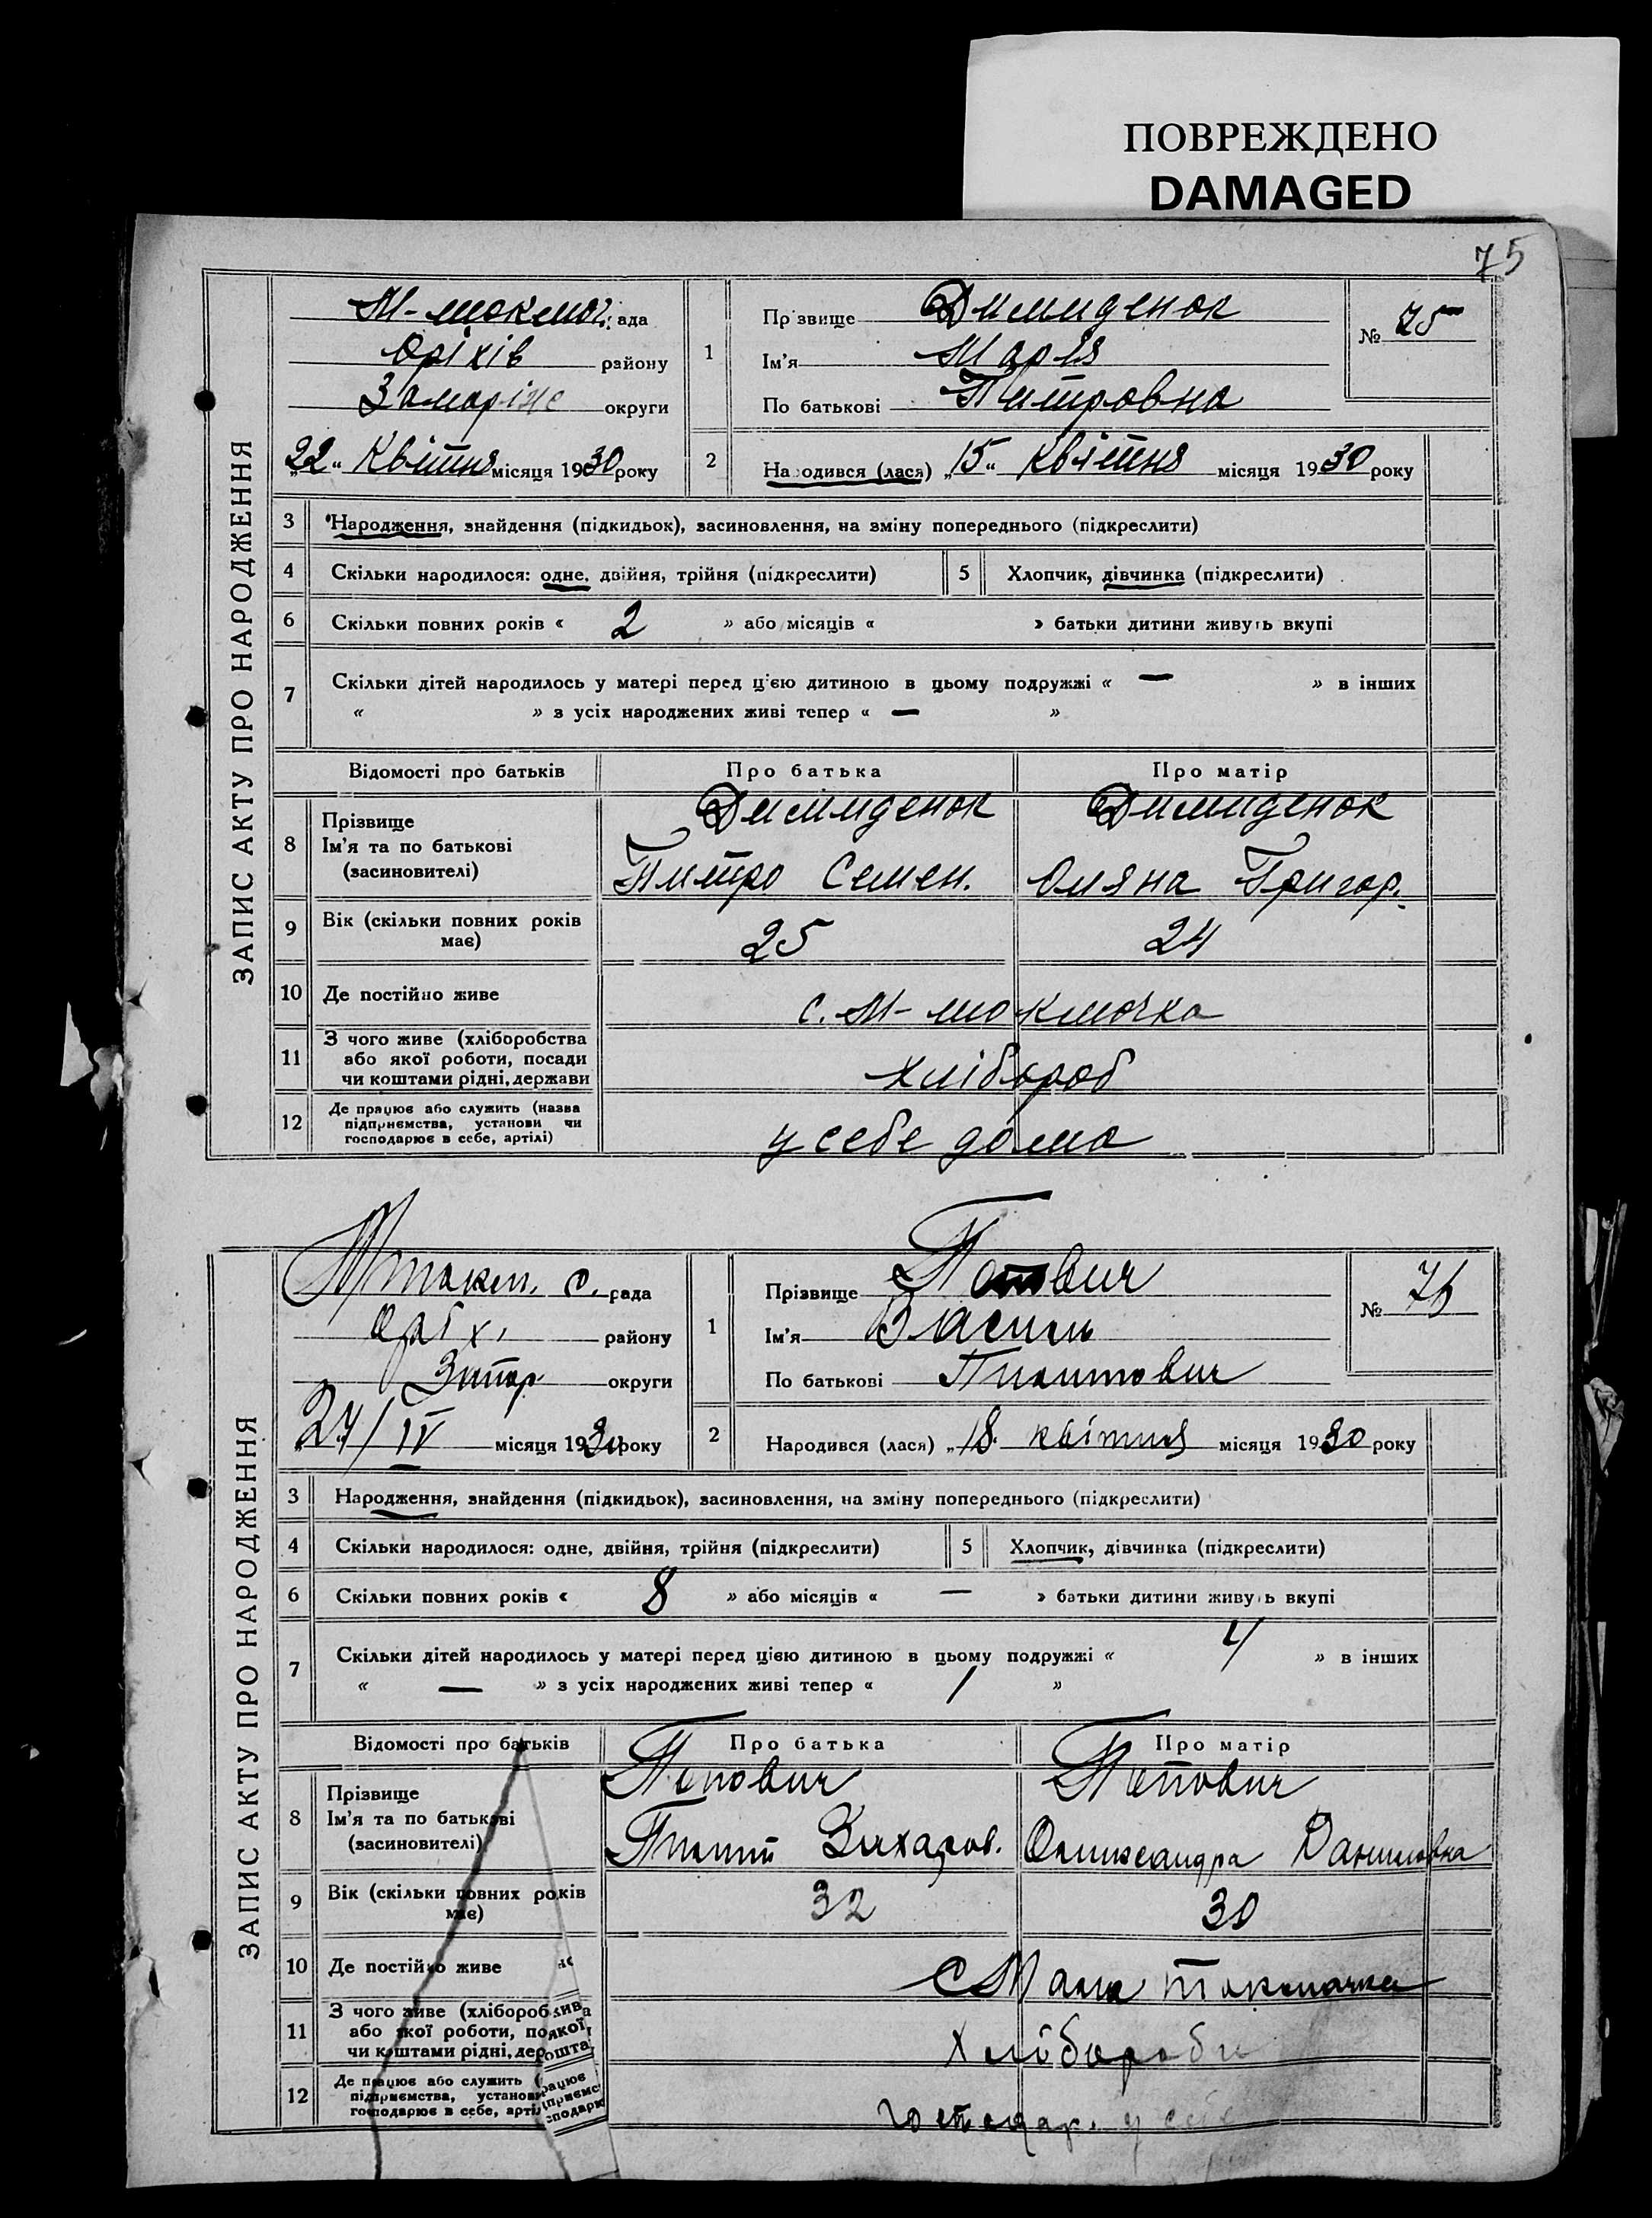 ПОВРЕЖДЕНО
DAMAGED
75
ЗАПИС АКТУ ПРО НАРОДЖЕННЯ
М-токмач. рада
Оріхів району
округи
„22“ Квітня місяця 1930 року
1
Прізвище Димиденок
Ім'я Марія
По батькові Питровна
№ 75
2
Народився (лася) „15“ Квітня місяця 1930 року
3 Народження, знайдення (підкидьок), засиновлення, на зміну попереднього (підкреслити)
4 Скільки народилося: одне, двійня, трійня (підкреслити) 5 Хлопчик, дівчинка (підкреслити)
6 Скільки повних років « 2 » або місяців « » батьки дитини живуть вкупі
7 Скільки дітей народилось у матері перед цією дитиною в цьому подружжі « — » в інших
« » з усіх народжених живі тепер « — »
Відомості про батьків Про батька Про матір
8 Прізвище Ім'я та по батькові (засиновителі)
Димиденок Димиденок
Питро Семен. Оляна Григор.
9 Вік (скільки повних років має) 25 24
10 Де постійно живе с. М-токмачка
11 З чого живе (хліборобства
або якої роботи, посади
чи коштами рідні, держави
хлібороб
12 Де працює або служить (назва
підприємства, установи чи
господарює в себе, артілі)
у себе дома
ЗАПИС АКТУ ПРО НАРОДЖЕННЯ
М токм. с. рада
Оріх. району
округи
„27/IV місяця 1930 року
1
Прізвище Попович
Ім'я Василь
По батькові Пилитович
№ 76
2
Народився (лася) „18. квітня місяця 1930 року
3 Народження, знайдення (підкидьок), засиновлення, на зміну попереднього (підкреслити)
4 Скільки народилося: одне, двійня, трійня (підкреслити) 5 Хлопчик, дівчинка (підкреслити)
6 Скільки повних років « 8 » або місяців « — » батьки дитини живуть вкупі
7 Скільки дітей народилось у матері перед цією дитиною в цьому подружжі « 4 » в інших
« — » з усіх народжених живі тепер « 1 »
Відомості про батьків Про батька Про матір
8 Прізвище Ім'я та по батькові (засиновителі)
Попович Попович
Пилип Захаров. Олександра Даниловна
9 Вік (скільки повних років має) 32 30
10 Де постійно живе с Мала токмачка
11 З чого живе (хліборобства
або якої роботи, посади
чи коштами рідні, держави
Хлібороби
12 Де працює або служить
підприємства, установи
господарює в себе, артілі
господар. у себе